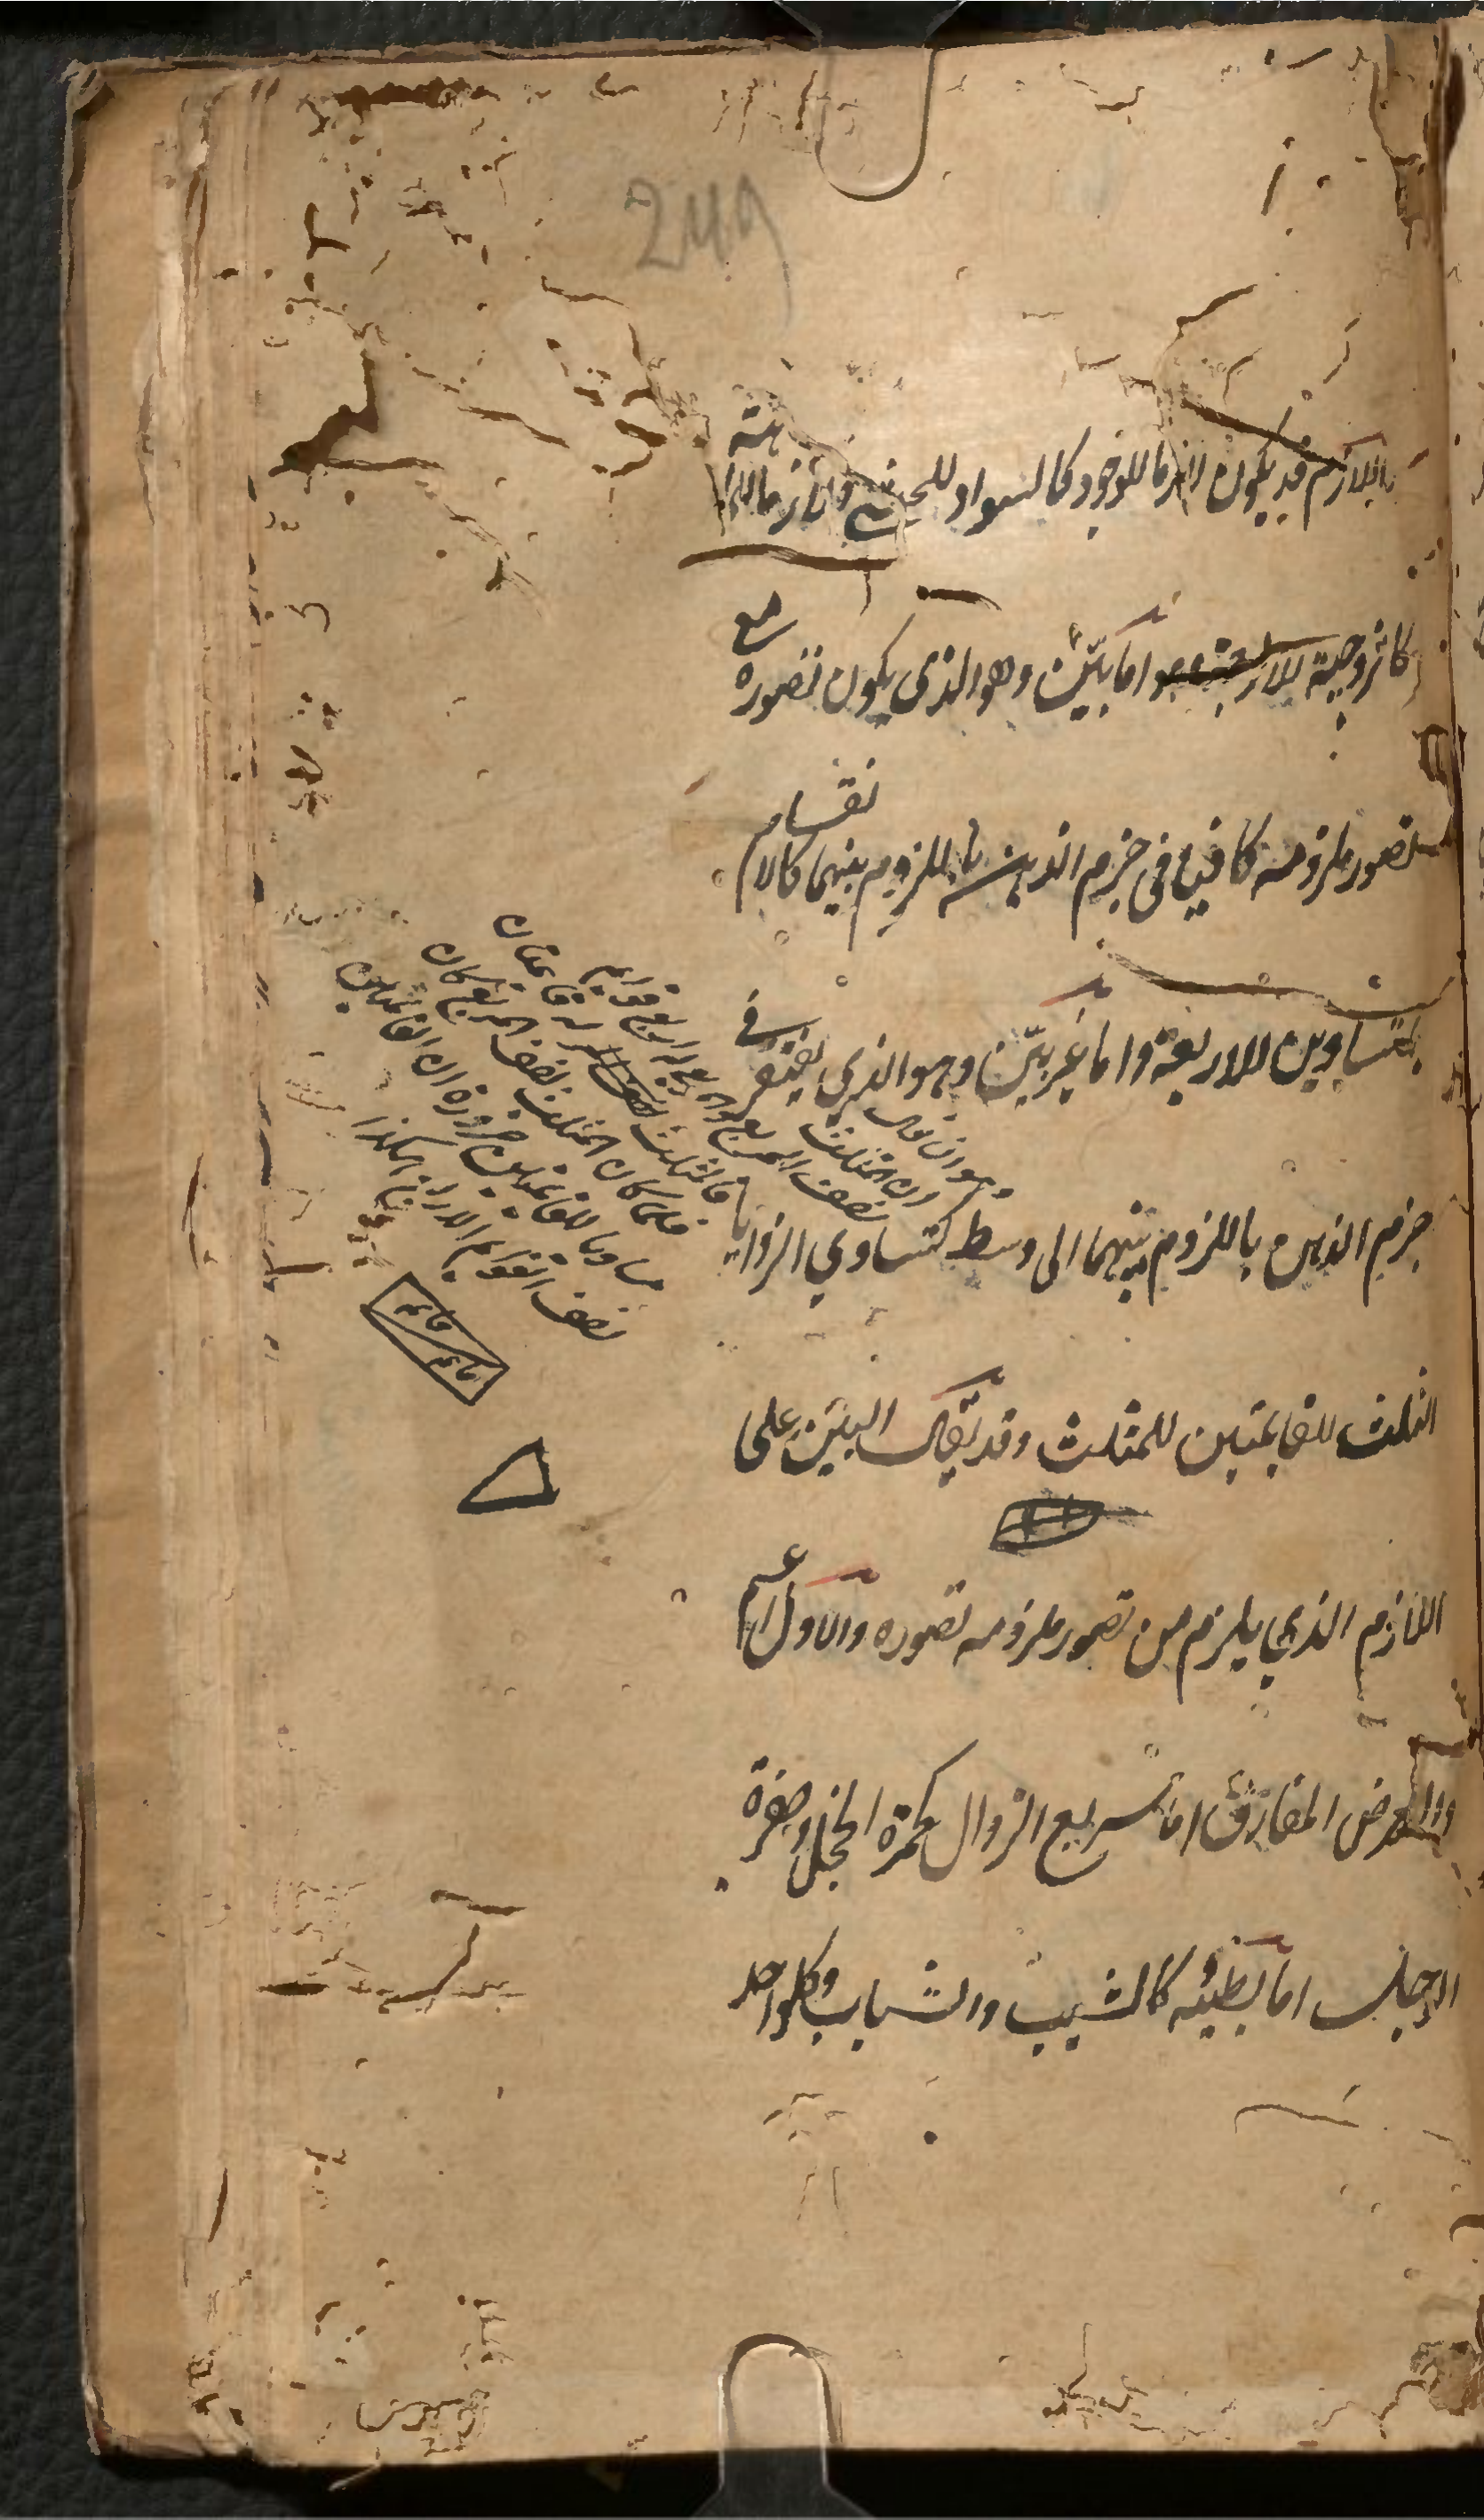 249
اللازم قد يكون لازما للوجود كالسواد للحبشي ولازما للماهية
كالزوجية للاربعة وهو اما بيّن وهو الذي يكون تصوره مع
تصور ملزومه كافيا في جزم الذهن باللزوم بينهما كالانقسام
بمتساويين للاربعة واما غير بيّن وهو الذي يفتقر في
جزم الذهن باللزوم بينهما الى وسط كتساوي الزوايا
الثلث للقايمتين للمثلث وقد يقال البيّن على
اللازم الذي يلزم من تصور ملزومه تصوره والاول اعم
والعرض المفارق اما سريع الزوال كحمرة الخجل وصفرة
الوجل اما بطيئه كالشيب والشباب وكل واحد
وهو ان يقال
ان المثلث
نصف المربع
فلما كان المثلث نصف المربع كان
مساويا للقايمتين ضرورة ان القايمتين
نصف القوايم الاربع هكذا
قايمه
قايمه